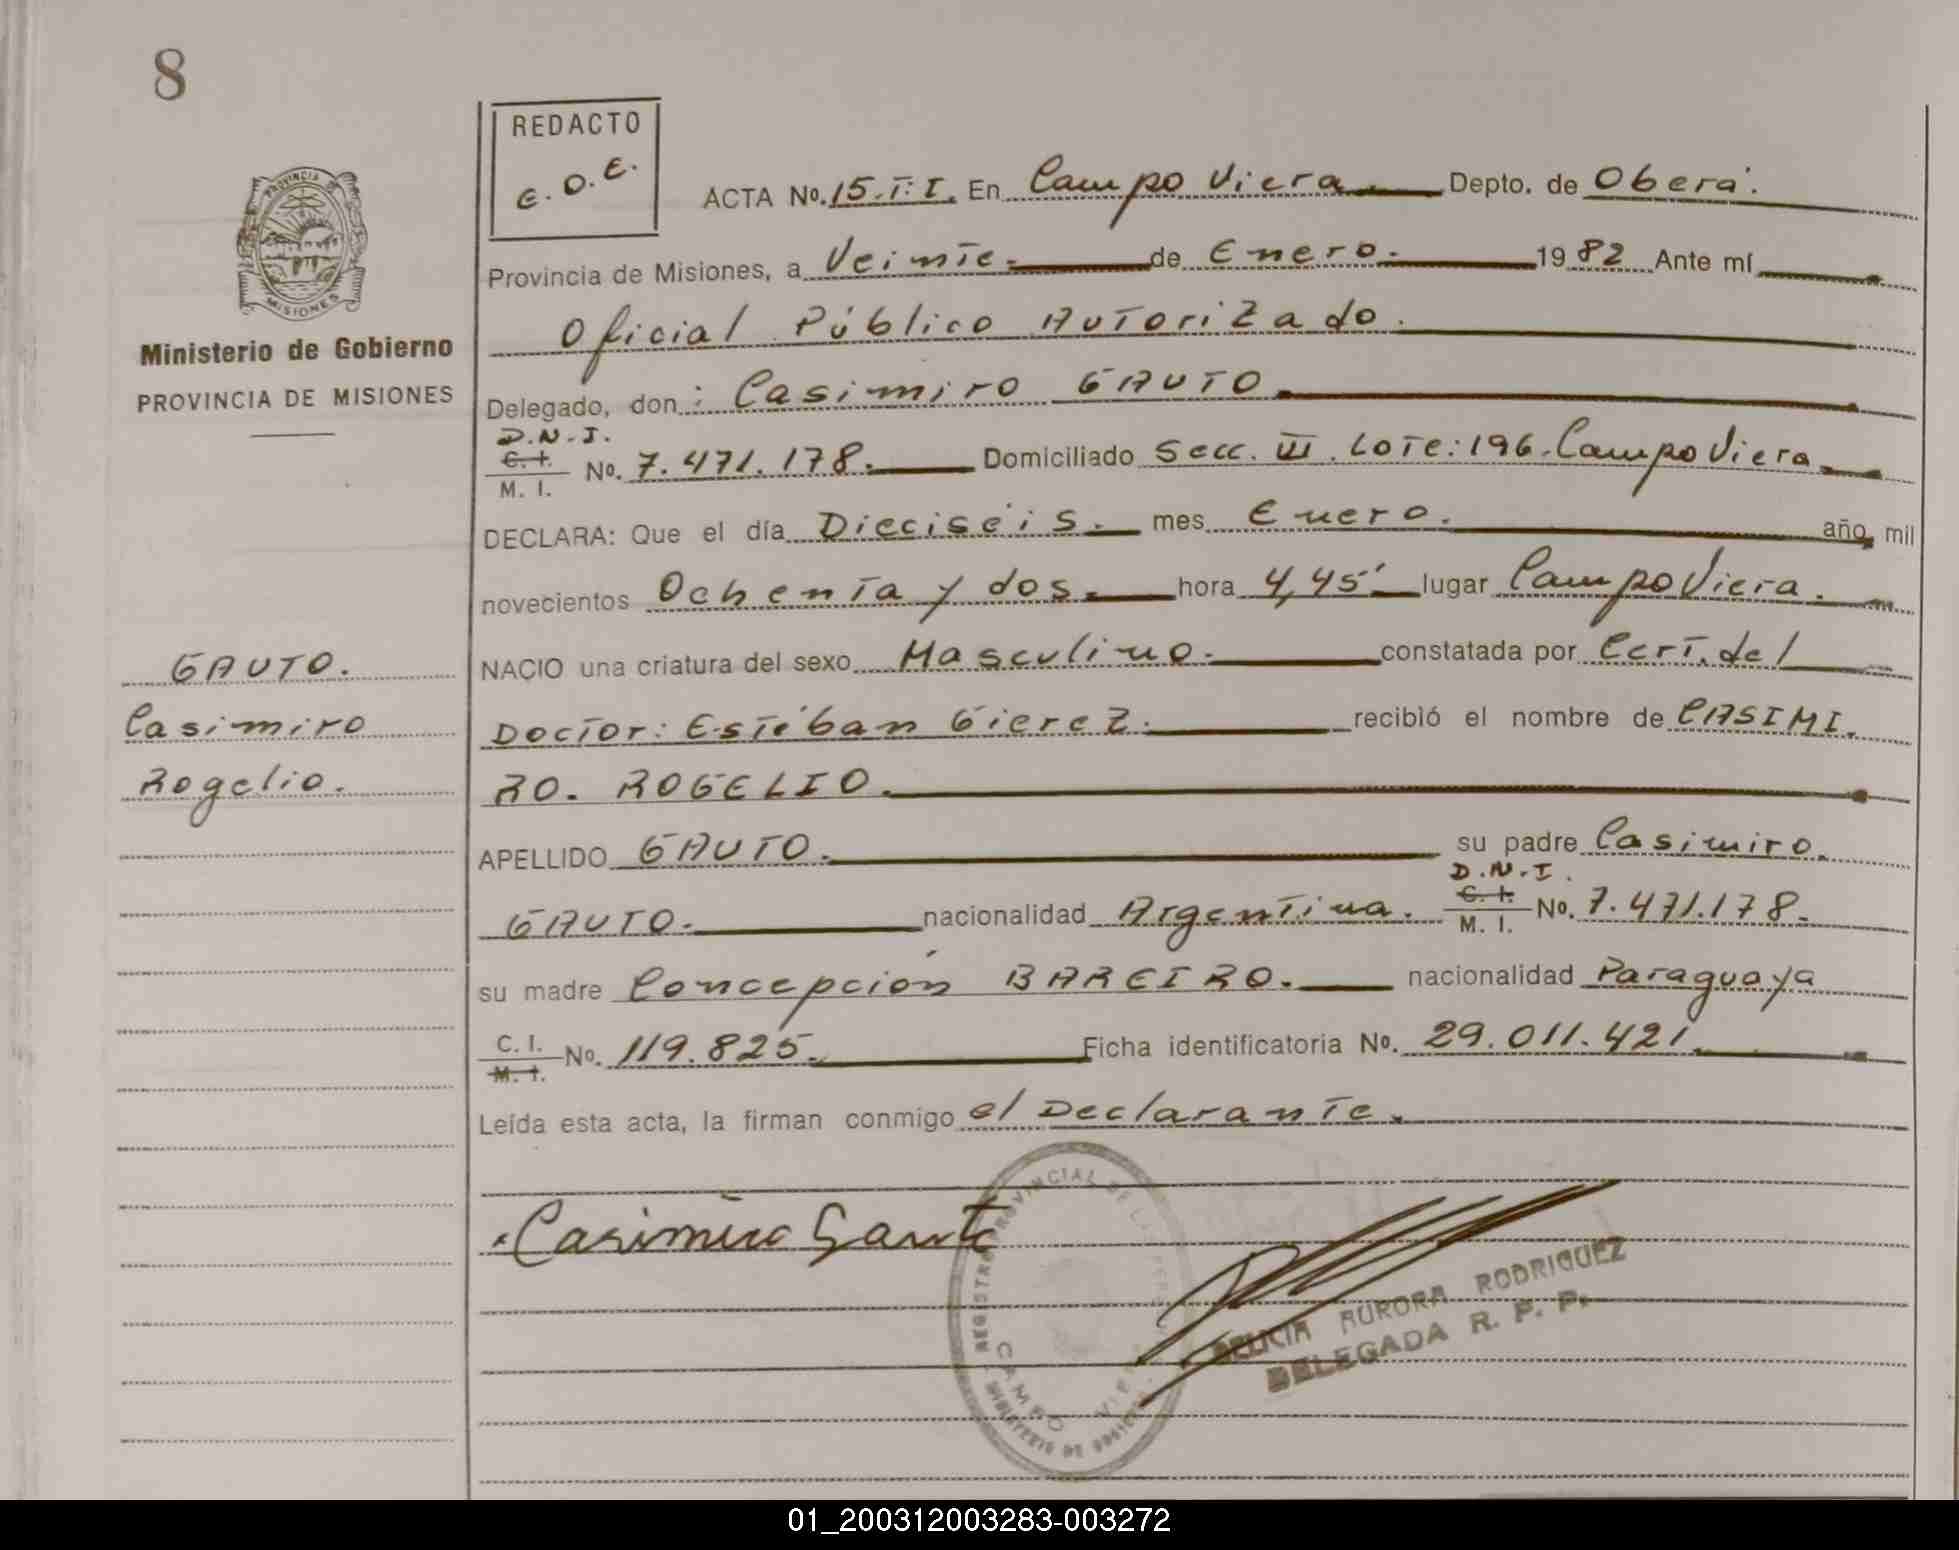 8
REDACTO
E.O.E.
PROVINCIA DE
MISIONES
Ministerio de Gobierno
PROVINCIA DE MISIONES
ACTA No. 15.T:I. En Campo Viera. Depto. de Oberá.
Provincia de Misiones, a Veinte. de Enero. 1982 Ante mí
Oficial Público Autorizado.
Delegado, don: Casimiro GAUTO.
D.N.I.
C. I.
M. I. No. 7.471.178. Domiciliado Secc. III. Lote: 196. Campo Viera
DECLARA: Que el día Dieciséis. mes Enero. año mil
novecientos Ochenta y dos. hora 4,45' lugar Campo Viera.
NACIO una criatura del sexo Masculino. constatada por Cert. del
Doctor: Estéban Gierez. recibió el nombre de CASIMI.
RO. ROGELIO.
APELLIDO GAUTO. su padre Casimiro.
D.N.I.
C. I.
GAUTO. nacionalidad Argentina. M. I. No. 7.471.178.
su madre Concepción BAREIRO. nacionalidad Paraguaya
C. I.
M. I. No. 119.825. Ficha identificatoria No. 29.011.421.
Leída esta acta, la firman conmigo el Declarante.
GAUTO.
Casimiro
Rogelio.
Casimiro Gauto
REGISTRO PROVINCIAL DE LAS PERSONAS
CAMPO VIERA
MINISTERIO DE GOBIERNO
DELICIA AURORA RODRIGUEZ
DELEGADA R. P. P.
01_200312003283-003272